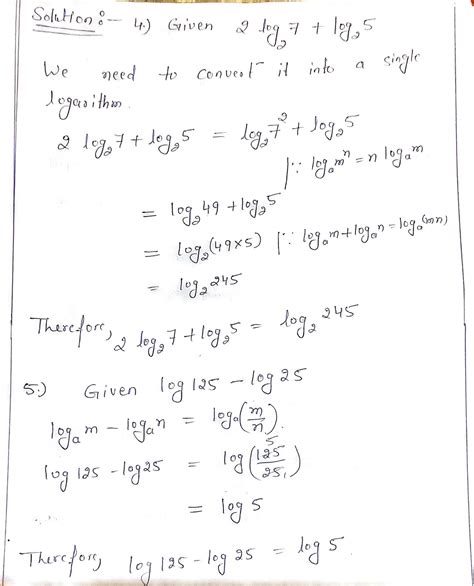 Solution:- 4.) Given 2 log₂7 + log₂5
We need to convert it into a single
logarithm.
2 log₂7 + log₂5 = log₂7² + log₂5
[∵ logₐmⁿ = n logₐm
= log₂49 + log₂5
= log₂(49×5) [∵ logₐm + logₐn = logₐ(mn)
= log₂245
Therefore, 2 log₂7 + log₂5 = log₂245
5.) Given log 125 - log 25
logₐm - logₐn = logₐ(m/n).
5
log 125 - log 25 = log(125/25₁)
= log 5
Therefore, log 125 - log 25 = log 5.